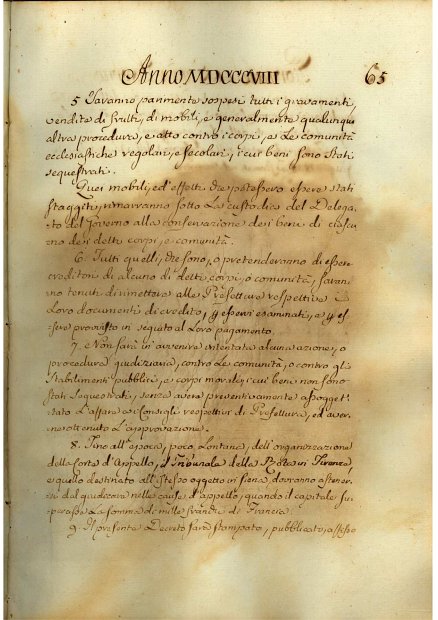 Anno MDCCCVIII 65
5 Saranno parimente sospesi tutti i gravamenti,
vendite di frutti, di mobili, e generalmente qualunque
altra procedura, e atto contro i corpi, e Le comunità
ecclesiastiche regolari, e secolari, i cui beni sono stati
sequestrati.
Quei mobili, ed effetti che potessero essere stati
staggiti, rimarranno sotto La custodia del Delega-
to del Governo alla conservazione dei beni di ciascu-
no dei detti corpi, e comunità.
6. Tutti quelli, che sono, o pretenderanno di essere
creditori di alcuno di detti corpi, o comunità, saran-
no tenuti di rimettere alle Prefetture respettive i
Loro documenti di credito, per esservi esaminati, e per es-
sere provvisto in seguito al Loro pagamento.
7. e Non sarà in avvenire intentata alcuna azione, o
procedura giudiziaria, contro Le comunità, o contro gli
stabilimenti pubblici, e corpi morali, i cui beni non sono
stati sequestrati, senza avere preventivamente assogget-
tato L'affare ai Consigli respettivi di Prefettura, ed aver-
ne ottenuto L'approvazione.
8. Fino all'epoca, poco Lontana, dell'organizzazione
della Corte d'Appello, il Tribunale della Rota in Firenze
e quello destinato all'istesso oggetto in Siena, dovranno astener-
si dal giudicare nelle cause d'appello, quando il capitale su-
perasse La somma di mille franchi di Francia.
9. Il presente Decreto sarà stampato, pubblicato, affisso